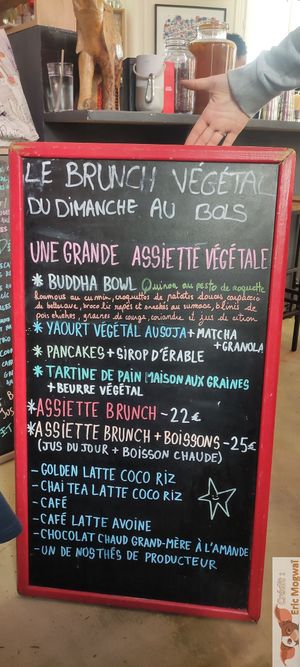 LE BRUNCH VÉGÉTAL
DU DIMANCHE AU BOLS
UNE GRANDE ASSIETTE VÉGÉTALE
* BUDDHA BOWL Quinoa au pesto de roquette
houmous au cumin, croquettes de patates douces, carpaccio
de betterave, brocolis rapés et aneckes au sumac, blinis de
pois chiches, graines de courge, coriandre et jus de citron
* YAOURT VÉGÉTAL AU SOJA + MATCHA
+ GRANOLA
* PANCAKES + SIROP D'ÉRABLE
* TARTINE DE PAIN MAISON AUX GRAINES
+ BEURRE VÉGÉTAL
* ASSIETTE BRUNCH - 22€
* ASSIETTE BRUNCH + BOISSONS - 25€
(JUS DU JOUR + BOISSON CHAUDE)
- GOLDEN LATTE COCO RIZ
- CHAI TEA LATTE COCO RIZ
- CAFÉ
- CAFÉ LATTE AVOINE
- CHOCOLAT CHAUD GRAND-MÈRE À L'AMANDE
- UN DE NOS THÉS DE PRODUCTEUR
Crédit :
Eric Mogwaï